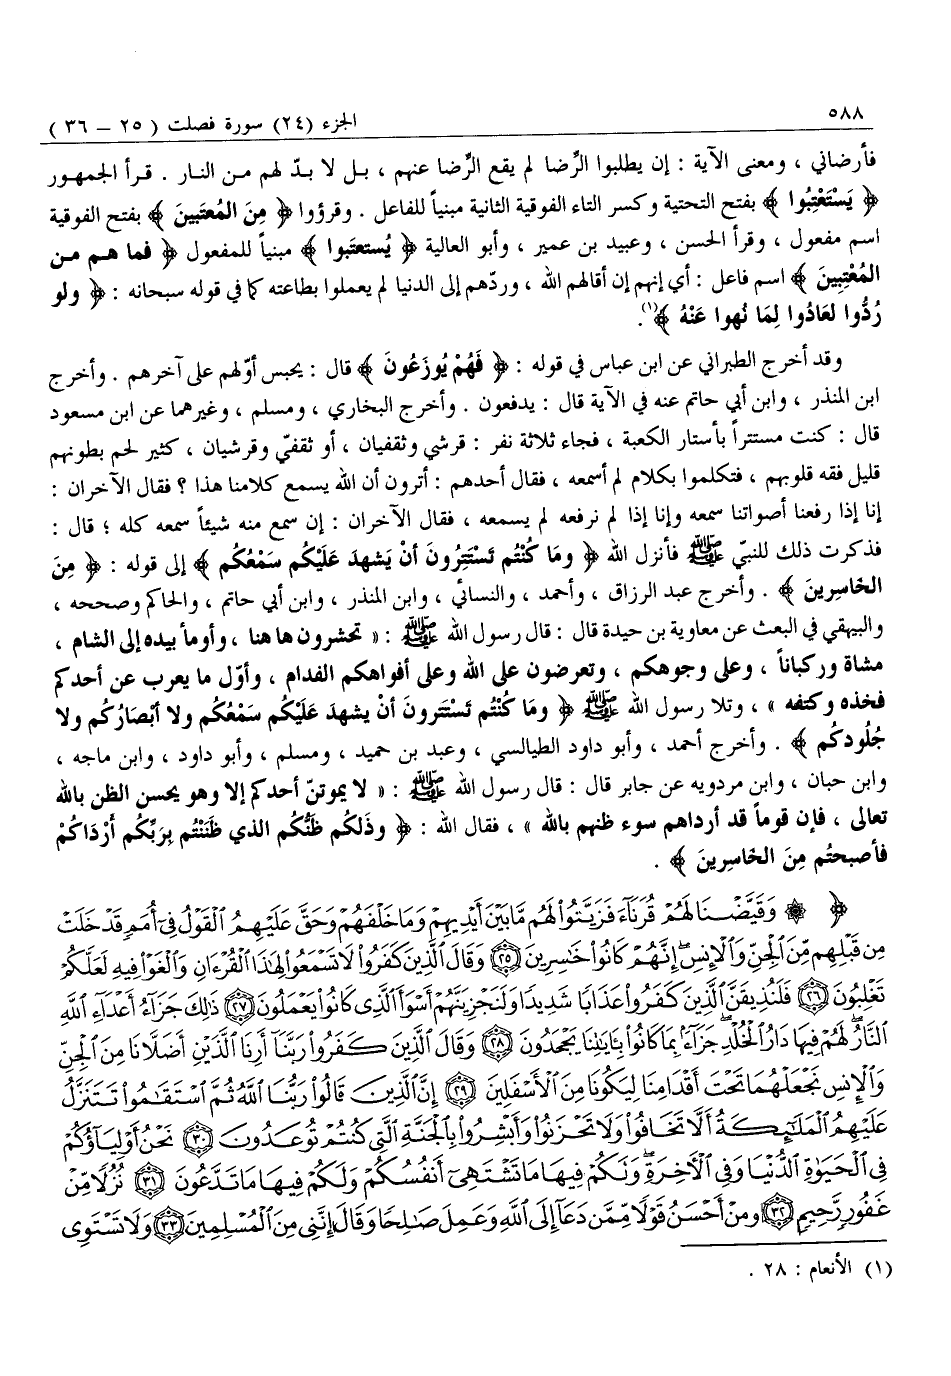 ٥٨٨
الجزء (٢٤) سورة فصلت ( ٢٥ – ٣٦ )
فأرضاني ، ومعنى الآية : إن يطلبوا الرِّضا لم يقع الرِّضا عنهم ، بـل لا بـدّ لهم مـن النـار . قـرأ الجمهـور
﴿ يَسْتَعْتِبُوا ﴾ بفتح التحتية وكسر التاء الفوقية الثانية مبنياً للفاعل . وقرؤوا ﴿ مِنَ المُعتَبينَ ﴾ بفتح الفوقية
اسم مفعول ، وقرأ الحسن ، وعبيد بن عمير ، وأبو العالية ﴿ يُستعتَبوا ﴾ مبنياً للمفعول ﴿ فما هـم مـن
المُعْتِبِينَ ﴾ اسم فاعل : أي إنهم إن أقالهم الله ، وردّهم إلى الدنيا لم يعملوا بطاعته كما في قوله سبحانه : ﴿ ولو
رُدُّوا لعَادُوا لِمَا نُهوا عَنْهُ ﴾(١).
وقد أخرج الطبراني عن ابن عباس في قوله : ﴿ فَهُمْ يُوزَعُونَ ﴾ قال : يحبس أوّلهم على آخرهم . وأخرج
ابن المنذر ، وابن أبي حاتم عنه في الآية قال : يدفعون . وأخرج البخاري ، ومسلم ، وغيرهما عن ابن مسعود
قال : كنت مستتراً بأستار الكعبة ، فجاء ثلاثة نفر : قرشي وثقفيان ، أو ثقفيّ وقرشيان ، كثير لحم بطونهم
قليل فقه قلوبهم ، فتكلموا بكلام لم أسمعه ، فقال أحدهم : أترون أن الله يسمع كلامنا هذا ؟ فقال الآخران :
إنا إذا رفعنا أصواتنا سمعه وإنا إذا لم نرفعه لم يسمعه ، فقال الآخران : إن سمع منه شيئاً سمعه كله ؛ قال :
فذكرت ذلك للنبيّ ﷺ فأنزل الله ﴿ ومَا كُنْتُم تَسْتَتِرُونَ أنْ يَشهدَ عَلَيْكُم سَمْعُكُم ﴾ إلى قوله : ﴿ مِنَ
الخَاسِرينَ ﴾ . وأخرج عبد الرزاق ، وأحمد ، والنسائي ، وابن المنذر ، وابن أبي حاتم ، والحاكم وصححه ،
والبيهقي في البعث عن معاوية بن حيدة قال : قال رسول الله ﷺ : « تحشرون ها هنا ، وأومأ بيده إلى الشام ،
مشاة وركباناً ، وعلى وجوهكم ، وتعرضون على الله وعلى أفواهكم الفدام ، وأوّل ما يعرب عن أحدكم
فخذه وكتفه » ، وتلا رسول الله ﷺ ﴿ ومَا كُنْتُم تَسْتَتِرونَ أنْ يشهدَ عَلَيْكُم سَمْعُكُم ولا أبْصَارُكُم ولا
جُلُودكُم ﴾ . وأخرج أحمد ، وأبو داود الطيالسي ، وعبد بن حميد ، ومسلم ، وأبو داود ، وابن ماجه ،
وابن حبان ، وابن مردويه عن جابر قال : قال رسول الله ﷺ : « لا يموتنّ أحدكم إلا وهو يحسن الظن بالله
تعالى ، فإن قوماً قد أرداهم سوء ظنهم بالله » ، فقال الله : ﴿ وذَلكُم ظَنُّكُم الذي ظَنَنْتُم بِرَبِّكُم أرْدَاكُمْ
فأصبحتُم مِنَ الخَاسِرينَ ﴾ .
﴿ ۞ وَقَيَّضْنَا لَهُمْ قُرَنَآءَ فَزَيَّنُوا۟ لَهُم مَّا بَيْنَ أَيْدِيهِمْ وَمَا خَلْفَهُمْ وَحَقَّ عَلَيْهِمُ ٱلْقَوْلُ فِىٓ أُمَمٍ قَدْ خَلَتْ
مِن قَبْلِهِم مِّنَ ٱلْجِنِّ وَٱلْإِنسِ ۖ إِنَّهُمْ كَانُوا۟ خَٰسِرِينَ ٢٥ وَقَالَ ٱلَّذِينَ كَفَرُوا۟ لَا تَسْمَعُوا۟ لِهَٰذَا ٱلْقُرْءَانِ وَٱلْغَوْا۟ فِيهِ لَعَلَّكُمْ
تَغْلِبُونَ ٢٦ فَلَنُذِيقَنَّ ٱلَّذِينَ كَفَرُوا۟ عَذَابًا شَدِيدًا وَلَنَجْزِيَنَّهُمْ أَسْوَأَ ٱلَّذِى كَانُوا۟ يَعْمَلُونَ ٢٧ ذَٰلِكَ جَزَآءُ أَعْدَآءِ ٱللَّهِ
ٱلنَّارُ ۖ لَهُمْ فِيهَا دَارُ ٱلْخُلْدِ ۖ جَزَآءًۢ بِمَا كَانُوا۟ بِـَٔايَٰتِنَا يَجْحَدُونَ ٢٨ وَقَالَ ٱلَّذِينَ كَفَرُوا۟ رَبَّنَآ أَرِنَا ٱلَّذَيْنِ أَضَلَّانَا مِنَ ٱلْجِنِّ
وَٱلْإِنسِ نَجْعَلْهُمَا تَحْتَ أَقْدَامِنَا لِيَكُونَا مِنَ ٱلْأَسْفَلِينَ ٢٩ إِنَّ ٱلَّذِينَ قَالُوا۟ رَبُّنَا ٱللَّهُ ثُمَّ ٱسْتَقَٰمُوا۟ تَتَنَزَّلُ
عَلَيْهِمُ ٱلْمَلَٰٓئِكَةُ أَلَّا تَخَافُوا۟ وَلَا تَحْزَنُوا۟ وَأَبْشِرُوا۟ بِٱلْجَنَّةِ ٱلَّتِى كُنتُمْ تُوعَدُونَ ٣٠ نَحْنُ أَوْلِيَآؤُكُمْ
فِى ٱلْحَيَوٰةِ ٱلدُّنْيَا وَفِى ٱلْءَاخِرَةِ ۖ وَلَكُمْ فِيهَا مَا تَشْتَهِىٓ أَنفُسُكُمْ وَلَكُمْ فِيهَا مَا تَدَّعُونَ ٣١ نُزُلًا مِّنْ
غَفُورٍ رَّحِيمٍ ٣٢ وَمَنْ أَحْسَنُ قَوْلًا مِّمَّن دَعَآ إِلَى ٱللَّهِ وَعَمِلَ صَٰلِحًا وَقَالَ إِنَّنِى مِنَ ٱلْمُسْلِمِينَ ٣٣ وَلَا تَسْتَوِى
(١) الأنعام : ٢٨ .